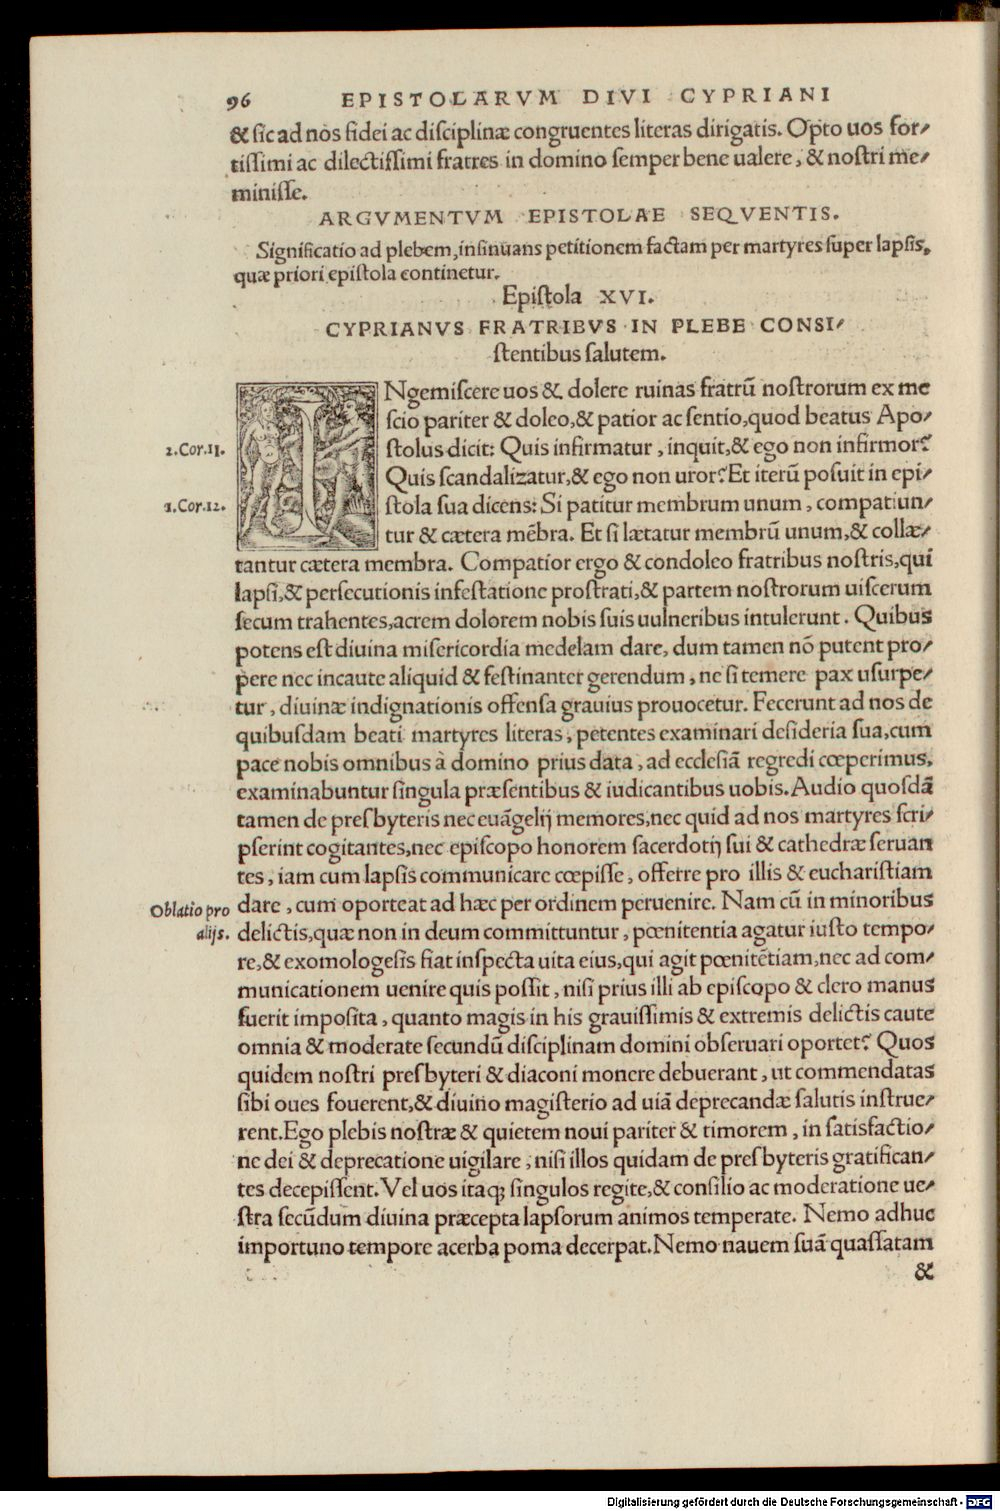 96 EPISTOLARVM DIVI CYPRIANI
& sic ad nos fidei ac disciplinæ congruentes literas dirigatis. Opto uos for-
tissimi ac dilectissimi fratres in domino semper bene ualere, & nostri me-
minisse.
ARGVMENTVM EPISTOLAE SEQVENTIS.
Significatio ad plebem, insinuans petitionem factam per martyres super lapsis,
quæ priori epistola continetur.
Epistola XVI.
CYPRIANVS FRATRIBVS IN PLEBE CONSI-
stentibus salutem.
INgemiscere uos & dolere ruinas fratrū nostrorum ex me
scio pariter & doleo, & patior ac sentio, quod beatus Apo-
2.Cor.11. stolus dicit: Quis infirmatur, inquit, & ego non infirmor?
Quis scandalizatur, & ego non uror? Et iterū posuit in epi-
1.Cor.12. stola sua dicens: Si patitur membrum unum, compatiun-
tur & cætera mēbra. Et si lætatur membrū unum, & collæ-
tantur cætera membra. Compatior ergo & condoleo fratribus nostris, qui
lapsi, & persecutionis infestatione prostrati, & partem nostrorum uiscerum
secum trahentes, acrem dolorem nobis suis uulneribus intulerunt. Quibus
potens est diuina misericordia medelam dare, dum tamen nō putent pro-
pere nec incaute aliquid & festinanter gerendum, ne si temere pax usurpe-
tur, diuinæ indignationis offensa grauius prouocetur. Fecerunt ad nos de
quibusdam beati martyres literas, petentes examinari desideria sua, cum
pace nobis omnibus à domino prius data, ad ecclesiā regredi cœperimus,
examinabuntur singula præsentibus & iudicantibus uobis. Audio quosdā
tamen de presbyteris nec euāgelij memores, nec quid ad nos martyres scri-
pserint cogitantes, nec episcopo honorem sacerdotij sui & cathedræ seruan
tes, iam cum lapsis communicare cœpisse, offerre pro illis & eucharistiam
Oblatio pro dare, cum oporteat ad hæc per ordinem peruenire. Nam cū in minoribus
alijs. delictis, quæ non in deum committuntur, pœnitentia agatur iusto tempo-
re, & exomologesis fiat inspecta uita eius, qui agit pœnitētiam, nec ad com-
municationem uenire quis possit, nisi prius illi ab episcopo & clero manus
fuerit imposita, quanto magis in his grauissimis & extremis delictis caute
omnia & moderate secundū disciplinam domini obseruari oportet? Quos
quidem nostri presbyteri & diaconi monere debuerant, ut commendatas
sibi oues fouerent, & diuino magisterio ad uiā deprecandæ salutis instrue-
rent. Ego plebis nostræ & quietem noui pariter & timorem, in satisfactio-
ne dei & deprecatione uigilare, nisi illos quidam de presbyteris gratifican-
tes decepissent. Vel uos itaq; singulos regite, & consilio ac moderatione ue-
stra secūdum diuina præcepta lapsorum animos temperate. Nemo adhuc
importuno tempore acerba poma decerpat. Nemo nauem suā quassatam
&
Digitalisierung gefördert durch die Deutsche Forschungsgemeinschaft - DFG